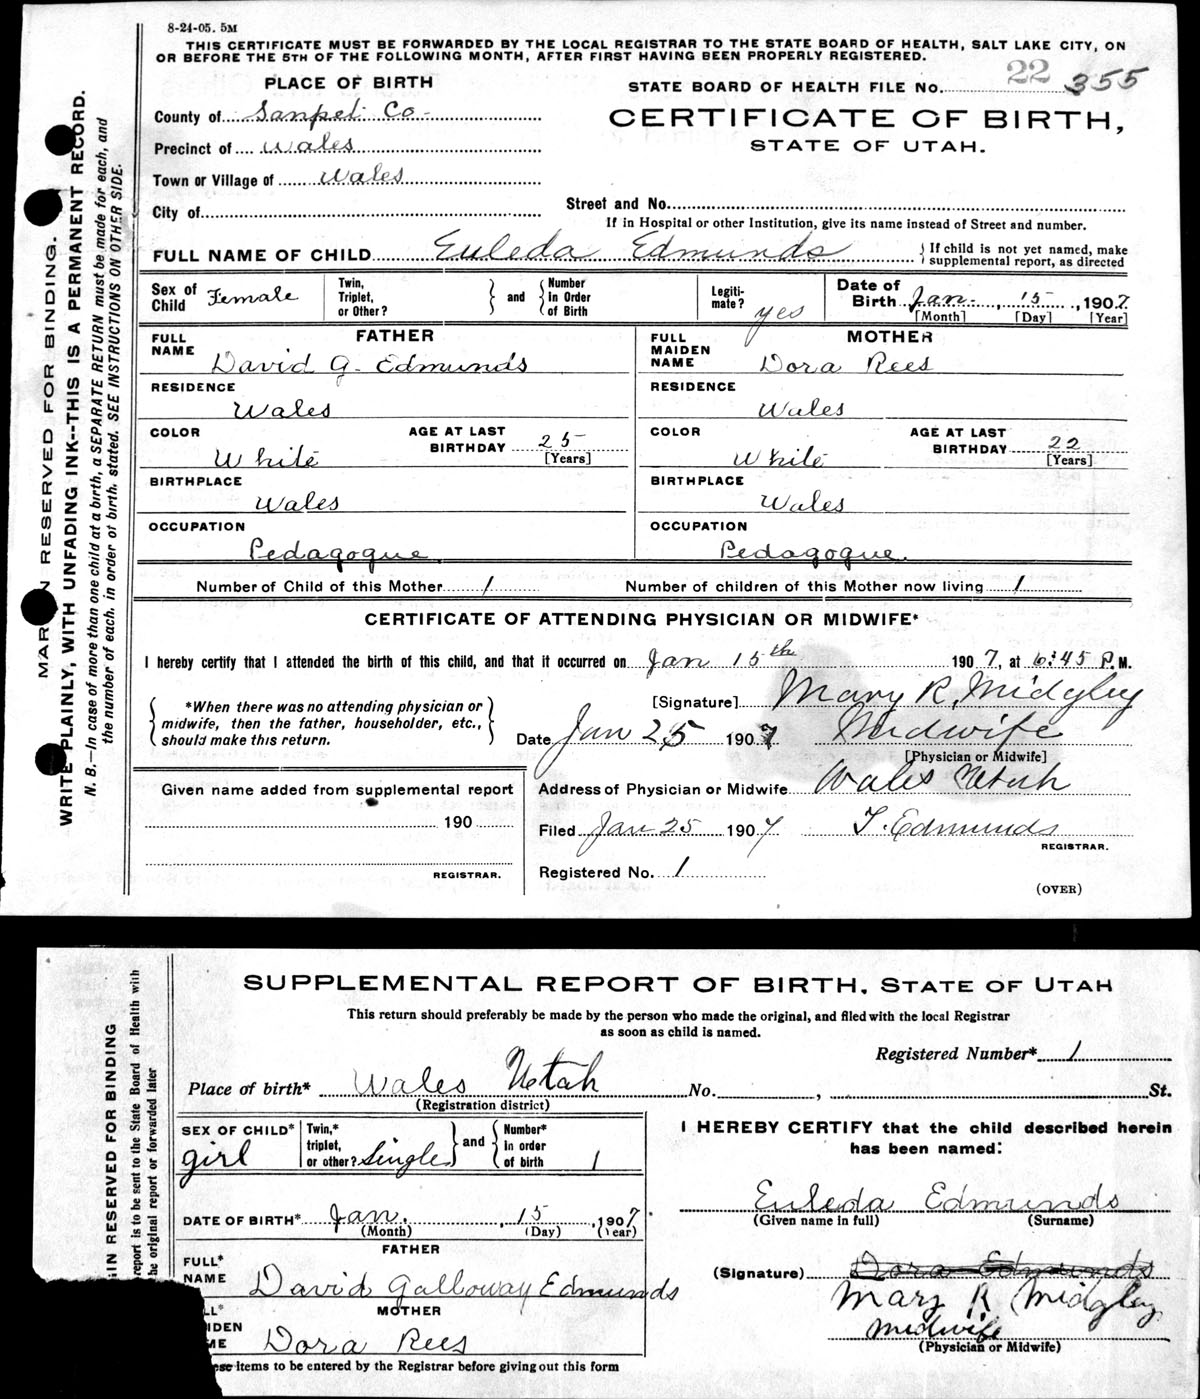 8-24-05. 5M
THIS CERTIFICATE MUST BE FORWARDED BY THE LOCAL REGISTRAR TO THE STATE BOARD OF HEALTH, SALT LAKE CITY, ON
OR BEFORE THE 5TH OF THE FOLLOWING MONTH, AFTER FIRST HAVING BEEN PROPERLY REGISTERED.
PLACE OF BIRTH
STATE BOARD OF HEALTH FILE No. 22 355
County of Sanpet Co.
CERTIFICATE OF BIRTH,
STATE OF UTAH.
Precinct of Wales
Town or Village of Wales
City of
Street and No.
If in Hospital or other Institution, give its name instead of Street and number.
FULL NAME OF CHILD Euleda Edmunds
If child is not yet named, make
supplemental report, as directed
Sex of Child Female
Twin, Triplet, or Other?
and
Number In Order of Birth
Legiti-mate? yes
Date of Birth Jan. 15, 1907
[Month] [Day] [Year]
FATHER
FULL NAME David G. Edmunds
RESIDENCE
Wales
COLOR White
AGE AT LAST BIRTHDAY 25
[Years]
BIRTHPLACE
Wales
OCCUPATION
Pedagogue
MOTHER
FULL MAIDEN NAME Dora Rees
RESIDENCE
Wales
COLOR White
AGE AT LAST BIRTHDAY 22
[Years]
BIRTHPLACE
Wales
OCCUPATION
Pedagogue.
Number of Child of this Mother 1 Number of children of this Mother now living 1
CERTIFICATE OF ATTENDING PHYSICIAN OR MIDWIFE*
I hereby certify that I attended the birth of this child, and that it occurred on Jan 15th 1907, at 6:45 P.M.
*When there was no attending physician or
midwife, then the father, householder, etc.,
should make this return.
[Signature] Mary R. Midgley
Date Jan 25 1907 Midwife
[Physician or Midwife]
Address of Physician or Midwife Wales Utah
Filed Jan 25 1907 T. Edmunds
REGISTRAR.
Registered No. 1
(OVER)
Given name added from supplemental report
190
REGISTRAR.
MARGIN RESERVED FOR BINDING.
WRITE PLAINLY, WITH UNFADING INK--THIS IS A PERMANENT RECORD.
N. B.—In case of more than one child at a birth, a SEPARATE RETURN must be made for each, and
the number of each, in order of birth, stated. SEE INSTRUCTIONS ON OTHER SIDE.
SUPPLEMENTAL REPORT OF BIRTH, STATE OF UTAH
This return should preferably be made by the person who made the original, and filed with the local Registrar
as soon as child is named.
Registered Number* 1
Place of birth* Wales Utah No. , St.
(Registration district)
SEX OF CHILD* girl
Twin,* triplet, or other? Single
and
Number* in order of birth 1
DATE OF BIRTH* Jan. 15, 1907
(Month) (Day) (Year)
FATHER
FULL* NAME David Galloway Edmunds
MOTHER
LL* IDEN ME Dora Rees
ese items to be entered by the Registrar before giving out this form
I HEREBY CERTIFY that the child described herein
has been named:
Euleda Edmunds
(Given name in full) (Surname)
(Signature) Dora Edmunds
Mary R Midgley
Midwife
(Physician or Midwife)
GIN RESERVED FOR BINDING
report is to be sent to the State Board of Health with
he original report or forwarded later